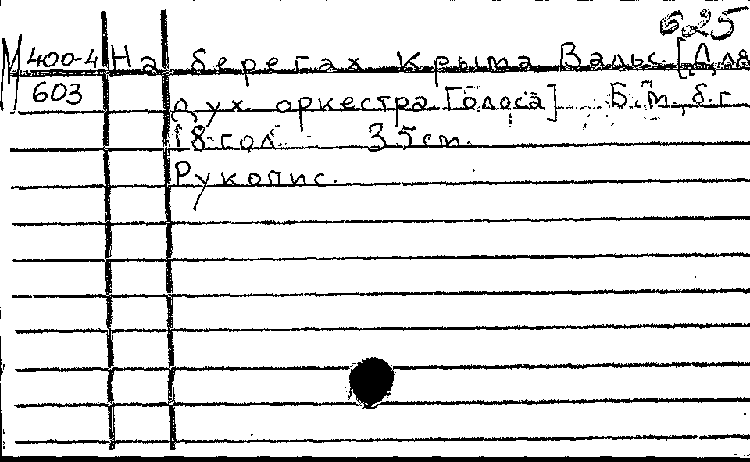 625
М 400-4 На берегах Крыма Вальс. [Для
603 дух оркестра. Голоса] Б.м., б.г.
18 гол. 35 см.
Рукопис.